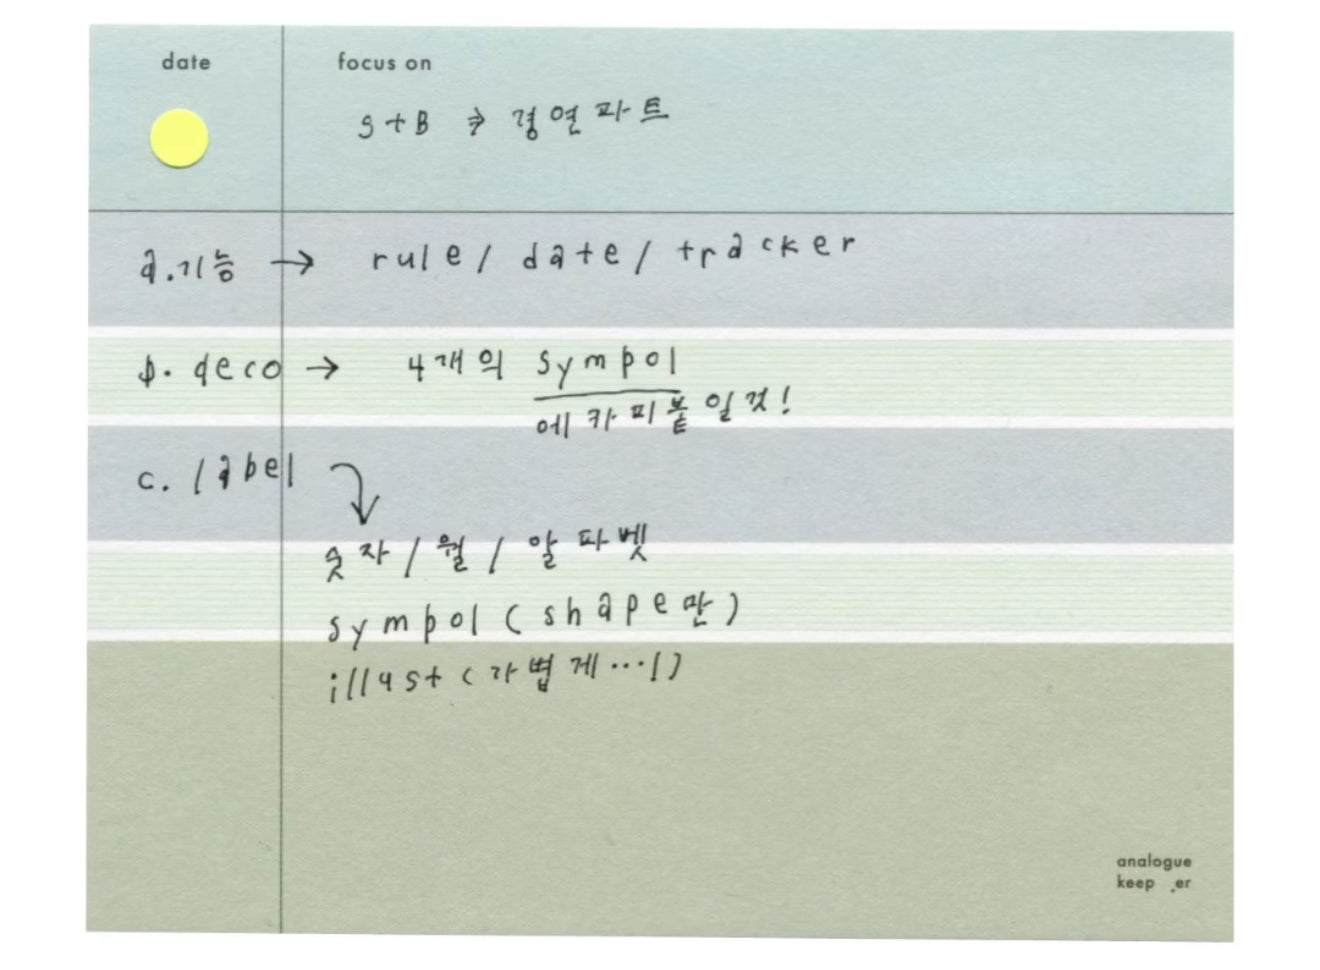 date
focus on
S+B ⇒ 경연파트
a.기능 → rule / date / tracker
b. deco → 4개의 sympol
에 카피붙일것!
c. label
숫자 / 월 / 알파벳
sympol ( shape만 )
illust ( 가볍게…! )
analogue
keep_er